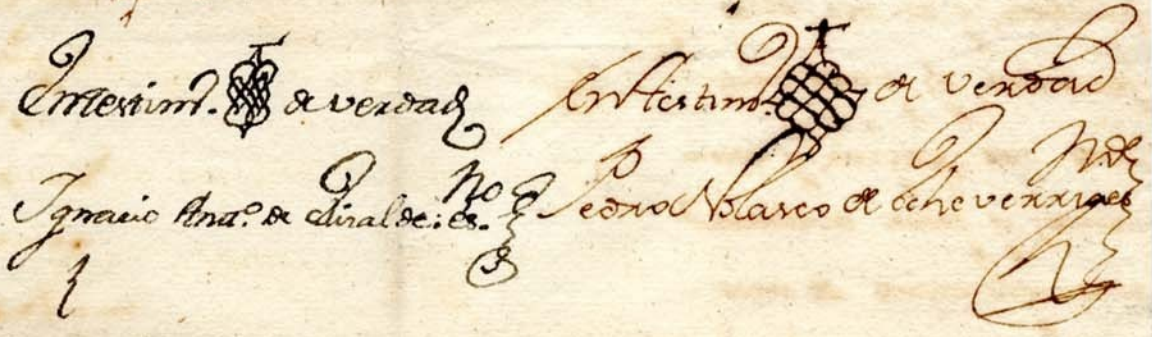 En testim.º de verdad
Ignacio Ant.º de Elizalde: es.no
En testim.º de verdad
Pedro Nolasco de Echeverri